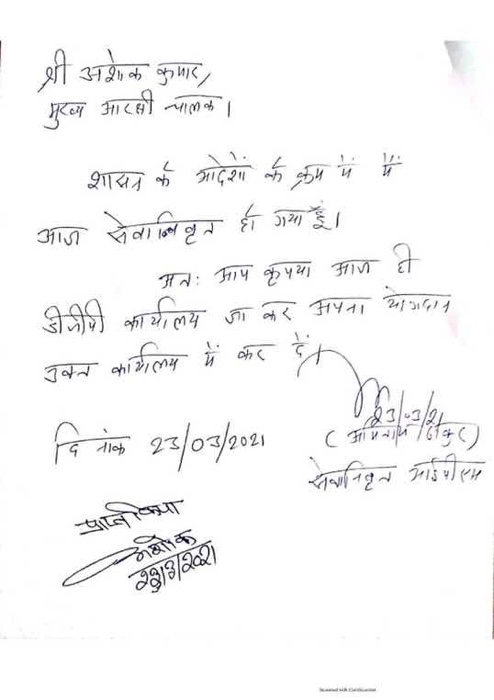 श्री अशोक कुमार,
मुख्य आरक्षी चालक।
शासन के आदेशों के क्रम में मैं
आज सेवानिवृत्त हो गया हूँ।
अतः आप कृपया आज ही
डीजीपी कार्यालय जा कर अपना योगदान
उक्त कार्यालय में कर दें।
23/03/21
(अमिताभ ठाकुर)
दिनांक 23/03/2021
सेवानिवृत आईपीएस
प्राप्त किया
अशोक
23/3/2021
Scanned with CamScanner